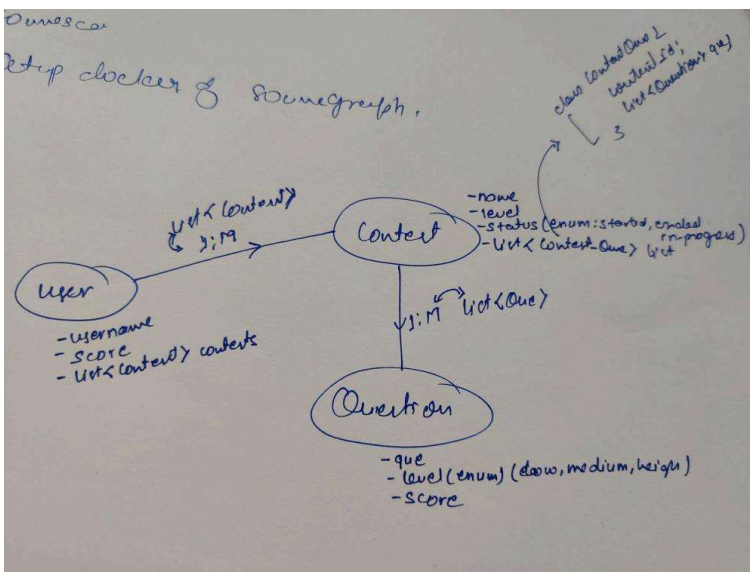 Setup docker of sourcegraph.
class ContestQue {
contestId;
List<Question> que
}
List<Contest>
1:M
Contest
-name
-level
-status (enum: started, ended
in-progress)
-List<Contest-Que> list
User
-username
-score
-List<Contest> contests
1:M List<Que>
Question
-que
-level (enum) (low, medium, heigh)
-score